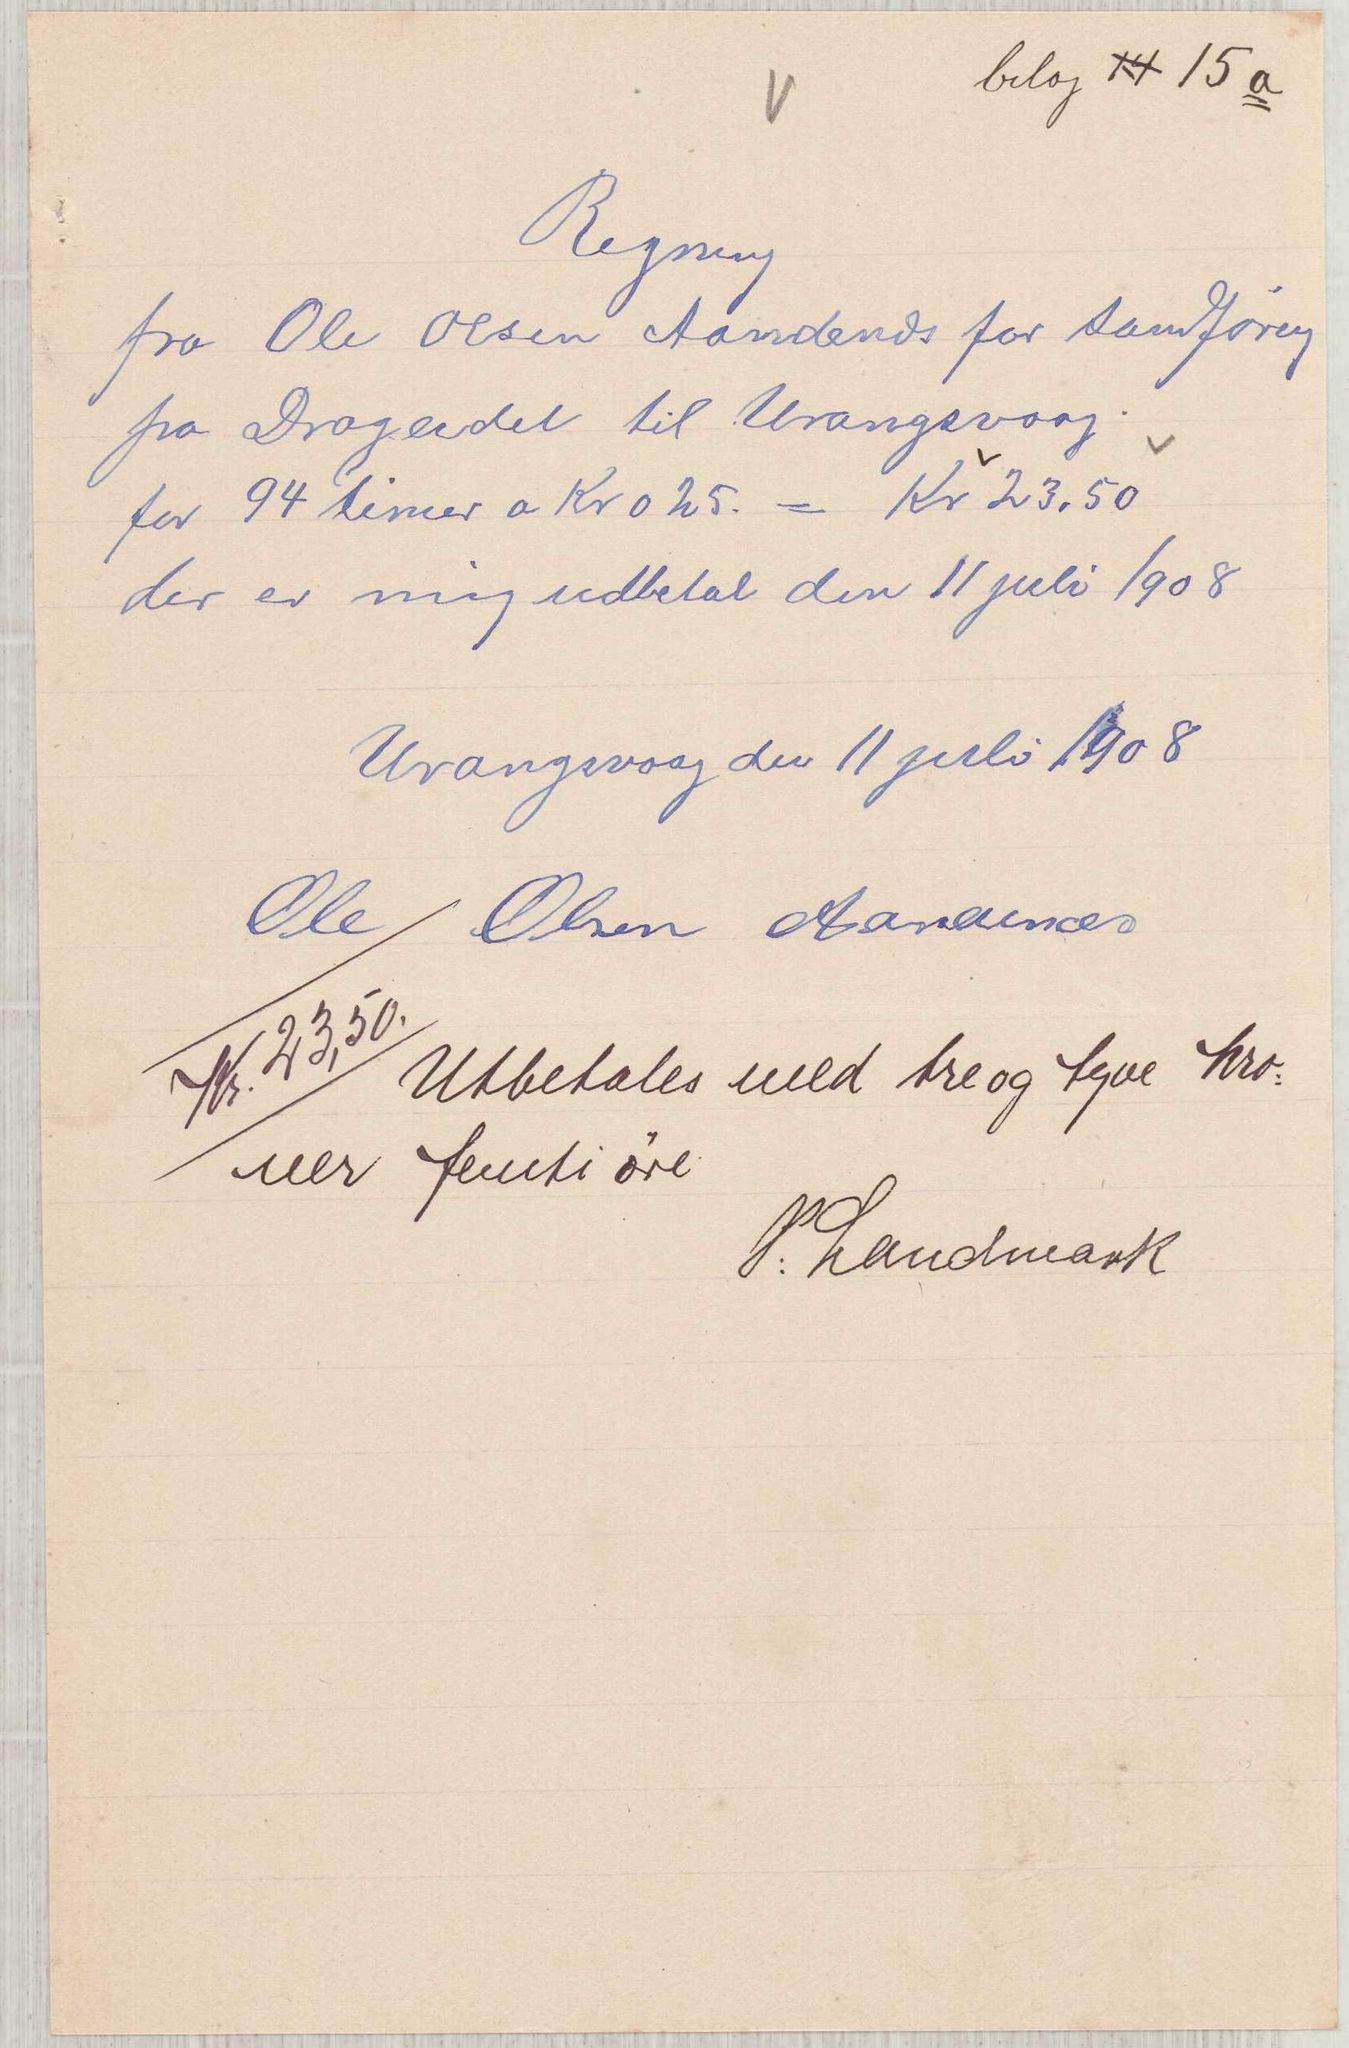 bilag 14 15 a
Regning
fra Ole Olsen Aandenes for sandföring
fra Drageidet til Urangsvaag.
for 94 timer a Kr 0 25. = Kr 23.50
der er mig udbetal den 11 juli 1908
Urangsvaag den 11 juli 1908
Ole Olsen Aandenæs
Kr. 23,50. Utbetales med treog tyve kro:
ner femti öre.
P. Landmark